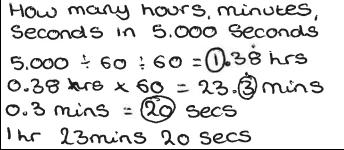 How many hours, minutes,
Seconds in 5.000 Seconds
5.000 ÷ 60 ÷ 60 = 1.38̇ hrs
0.38 hrs × 60 = 23.3̇ mins
0.3 mins = 20 secs
1hr 23mins 20 secs